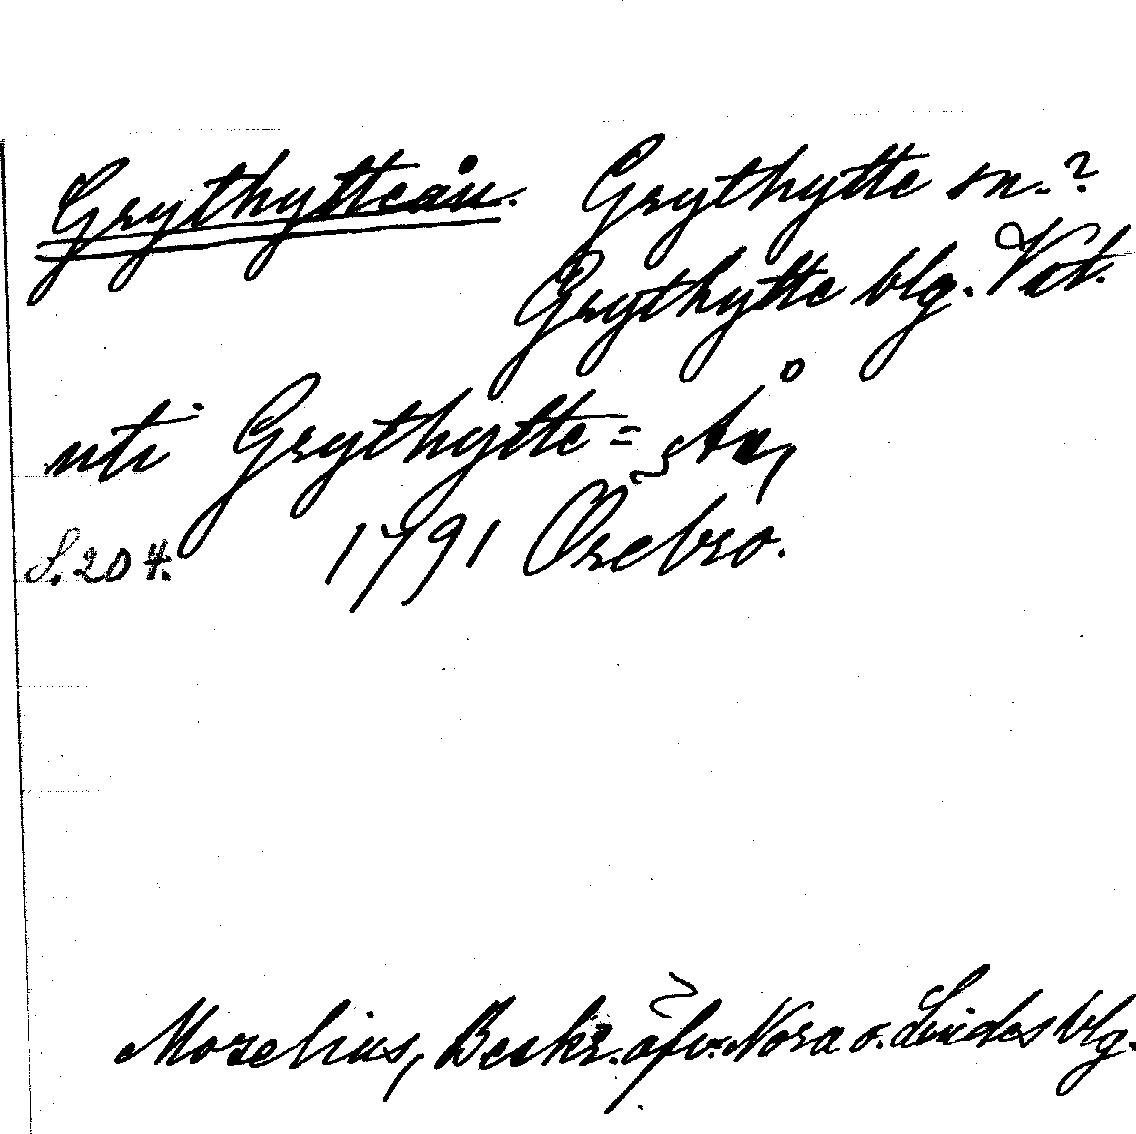 Grythytteån. Grythytte sn.?
Grythytte blg. Vst.
uti Grythytte=Ån,
S. 204. 1791 Örebro.
Morelius, Beskr. öfv. Nora o. Lindes blg.